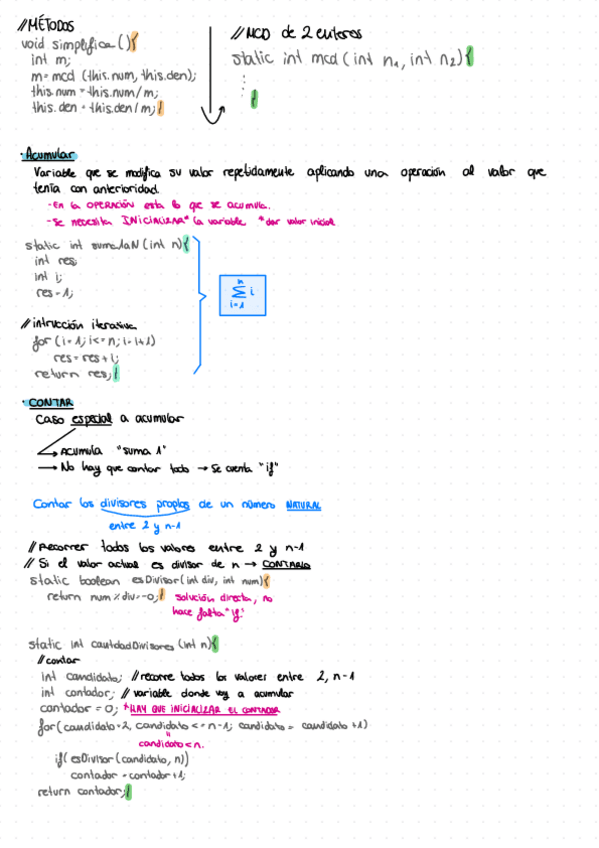 //MÉTODOS
void simplifica(){
int m;
m=mcd (this.num, this.den);
this.num = this.num/m;
this.den = this.den/m;}
//MCD de 2 enteros
static int mcd (int n1, int n2){
:
:
}
· Acumular
Variable que se modifica su valor repetidamente aplicando una operación al valor que
tenía con anterioridad.
- En la OPERACIÓN esta lo que se acumula.
- Se necesita INICIALIZAR* la variable *dar valor inicial
static int sumalaN (int n){
int res;
int i;
res=1;
n
∑ i
i=1
//intrucción iterativa
for (i=1; i<=n; i=i+1)
res = res + i;
return res;}
· CONTAR
Caso especial a acumular
→ Acumula "suma 1"
→ No hay que contar todo → Se cuenta "if"
Contar los divisores propios de un número NATURAL
entre 2 y n-1
//Recorrer todos los valores entre 2 y n-1
// Si el valor actual es divisor de n → CONTARLO
static boolean esDivisor (int div, int num){
return num % div==0;} solución directa, no
hace falta "if"
static int cantidadDivisores (int n){
//contar
int candidato; //recorre todos los valores entre 2, n-1
int contador; // variable donde voy a acumular
contador = 0; *HAY QUE INICIALIZAR EL CONTADOR
for(candidato=2, candidato <= n-1; candidato = candidato +1)
"
candidato<n.
if( esDivisor (candidato, n))
contador = contador +1;
return contador;}